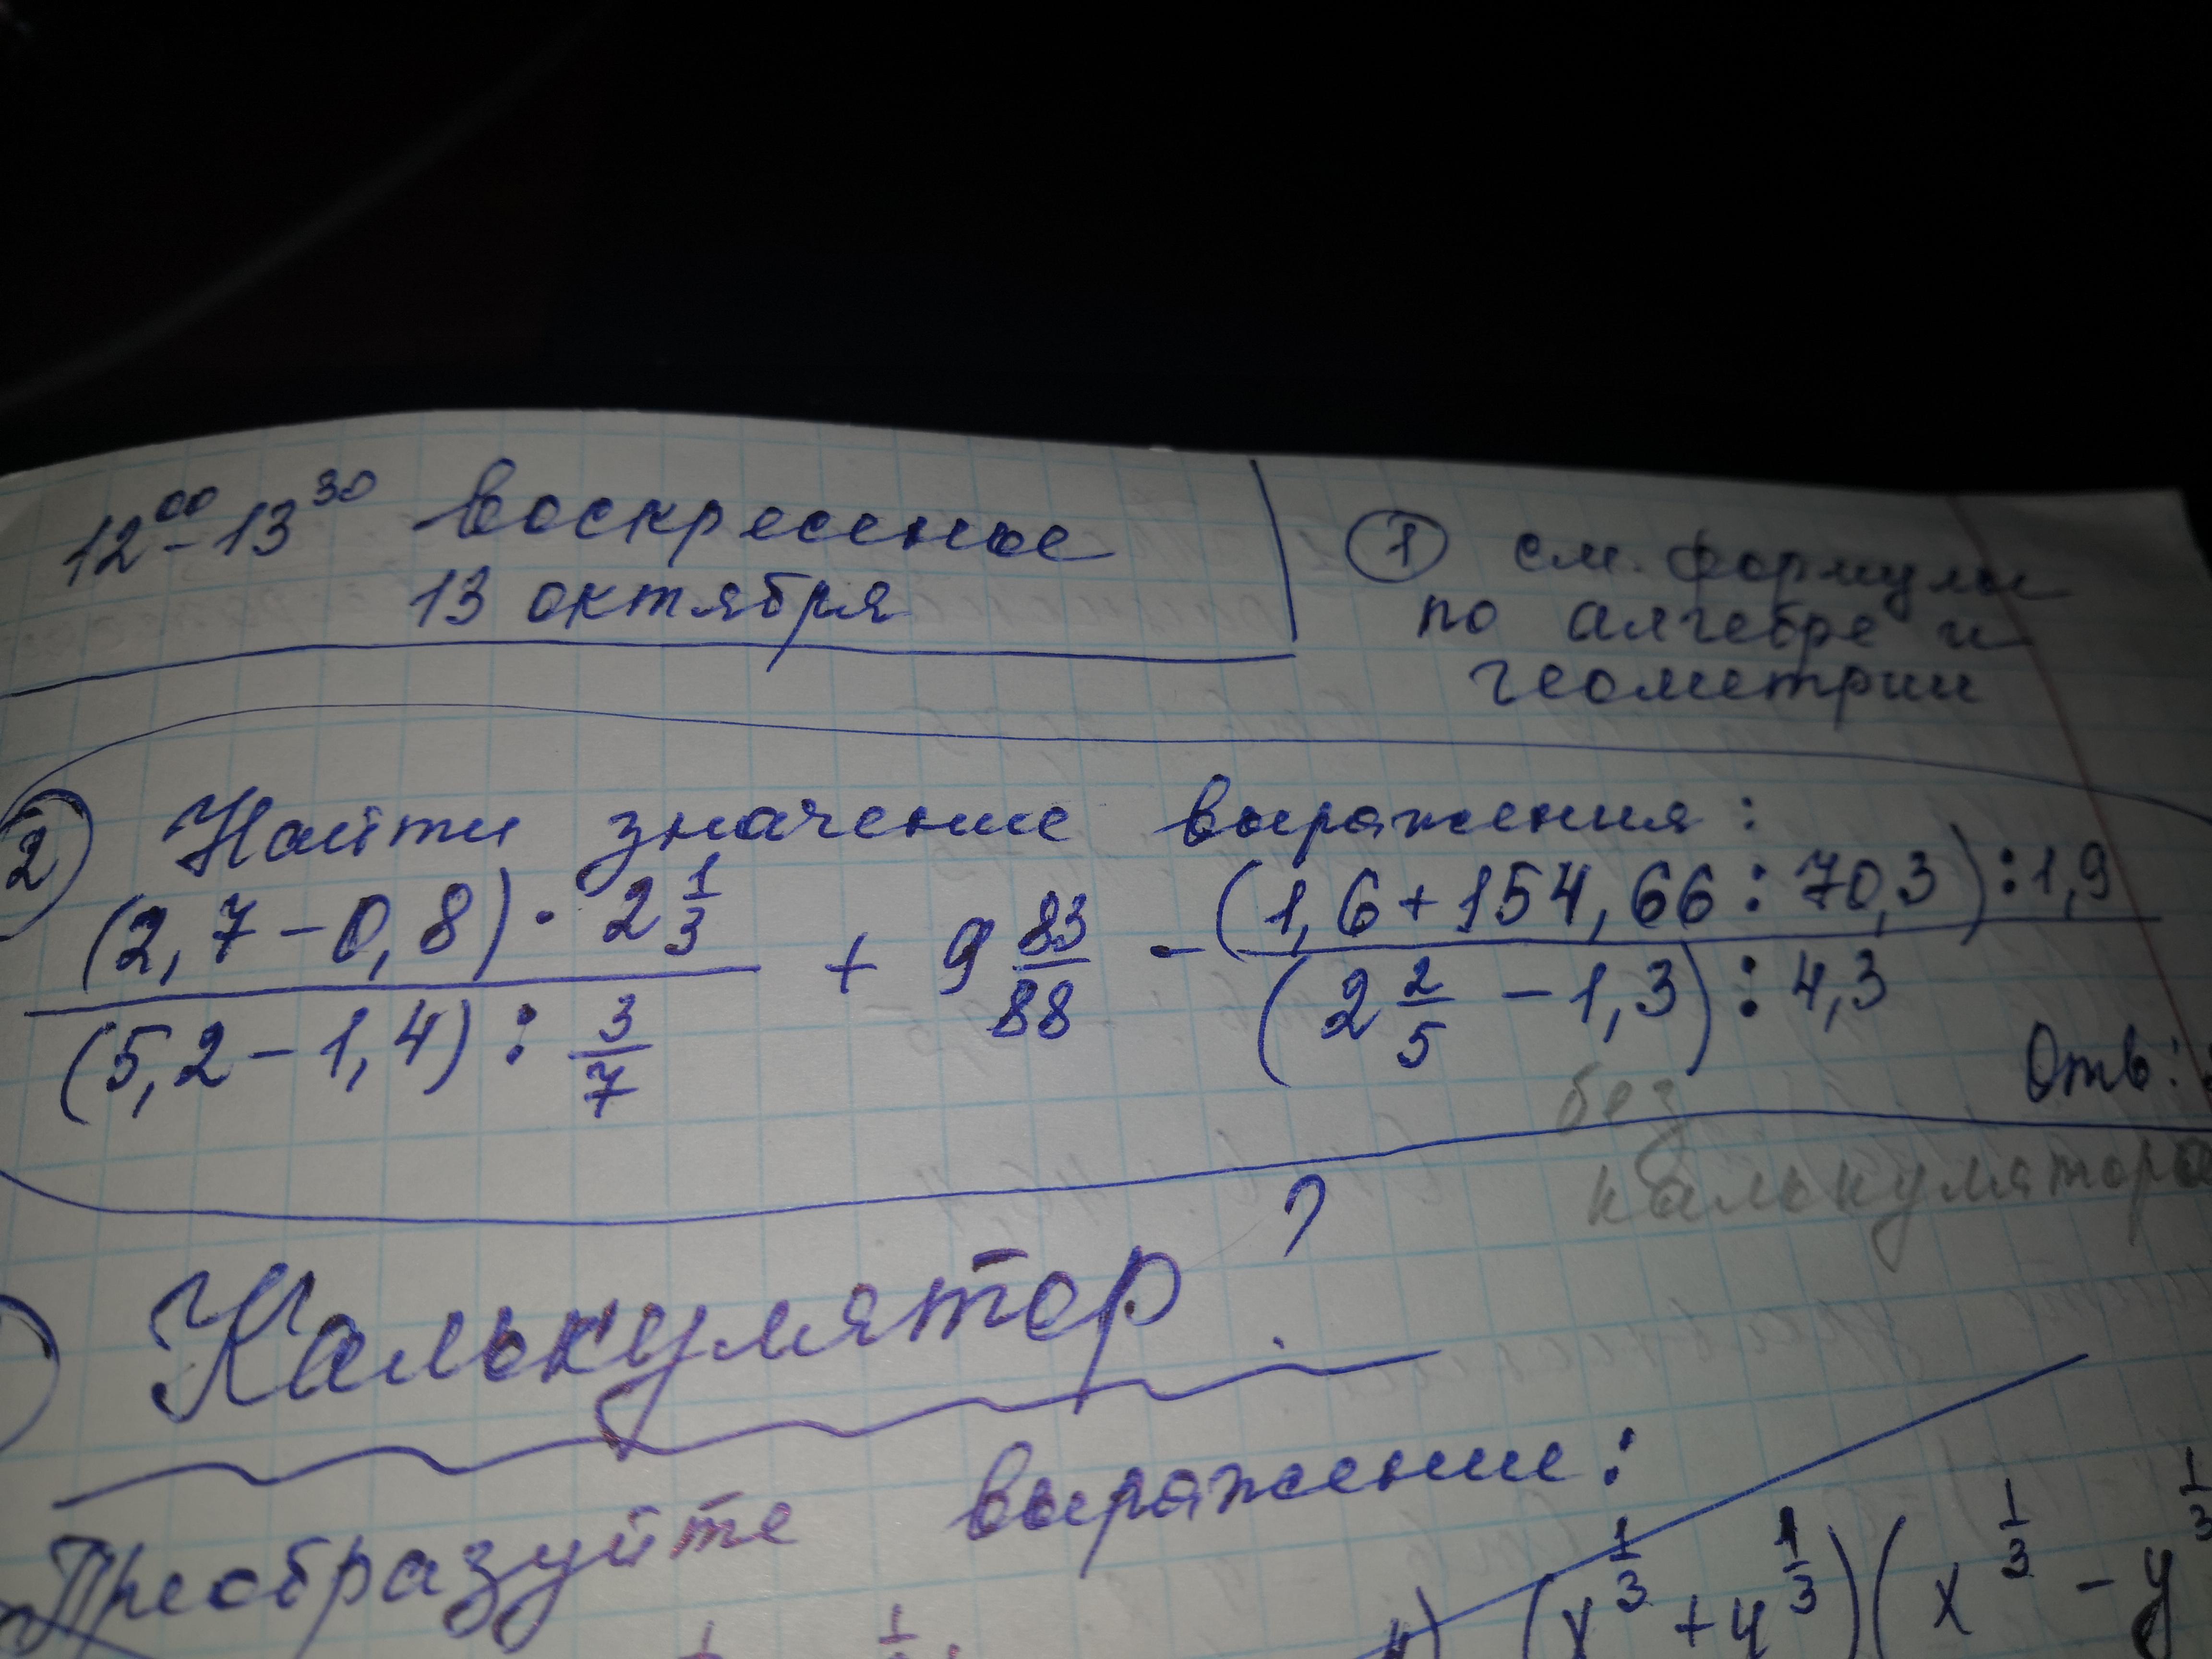 12⁰⁰-13³⁰ воскресенье
13 октября
① см. формулы
по алгебре и
геометрии
② Найти значение выражения:
(2,7-0,8)·2 1/3 / (5,2-1,4):3/7 + 9 83/88 - (1,6+154,66:70,3):1,9 / (2 2/5 - 1,3):4,3
Отв:
без
калькулятора
Калькулятор?
Преобразуйте выражение:
(x^1/3 + y^1/3)(x^1/3 - y^1/3